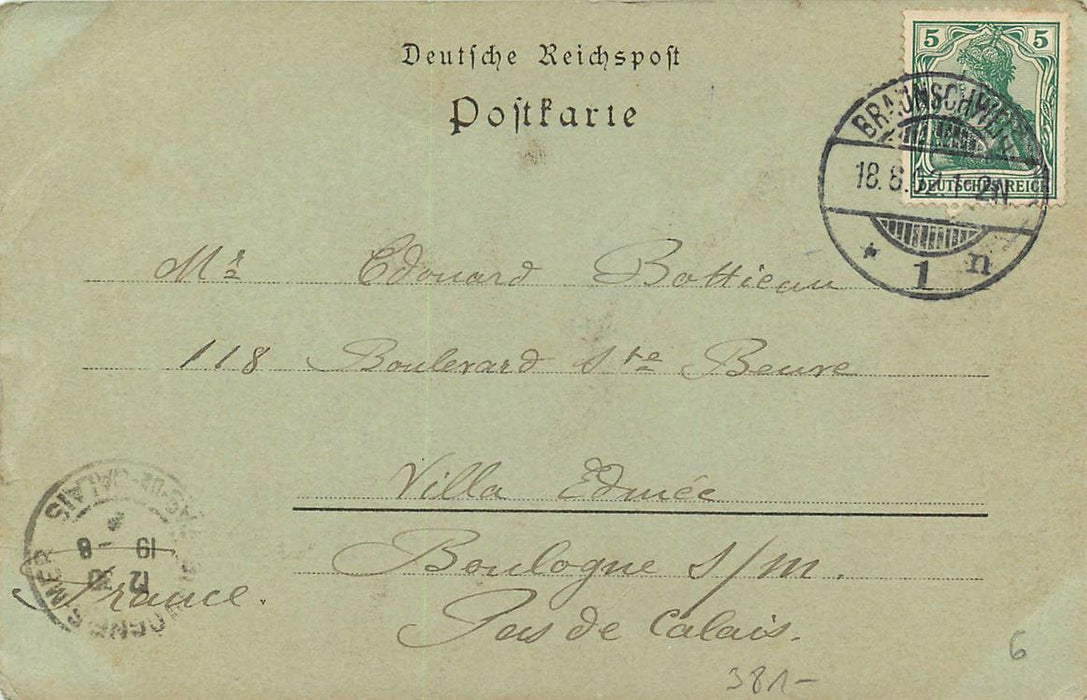 Deutsche Reichspost
Postkarte
5 5
DEUTSCHES REICH
BRAUNSCHWEIG
18.8. 1-2N
* 1 n
Mr Edouard Bottieau
118 Boulevard Ste Beuve
Villa Edmée
Boulogne s/m.
Pas de Calais.
France.
PAS-DE-CALAIS
19 - 8
12
S MER
381-
6